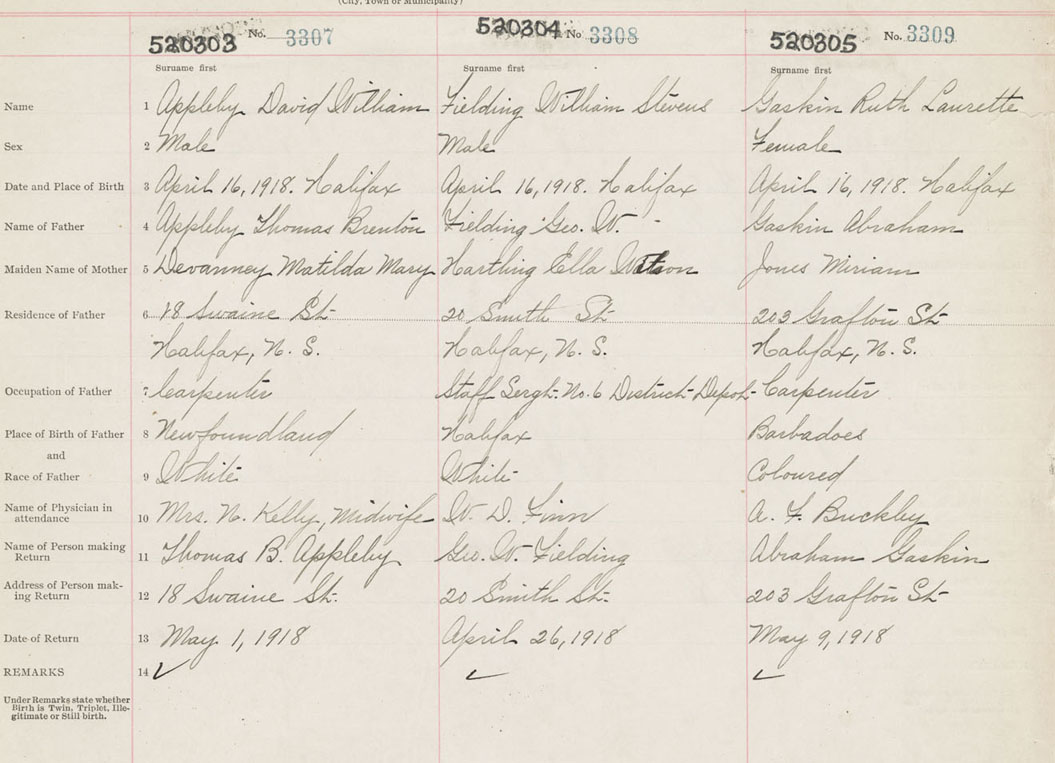 (City, Town or Municipality)
520303 No. 3307 520304 No 3308 520305 No. 3309
Surname first Surname first Surname first
Name 1 Appleby David William Fielding William Stevens Gaskin Ruth Laurette
Sex 2 Male Male Female
Date and Place of Birth 3 April 16, 1918. Halifax April 16, 1918. Halifax April 16, 1918. Halifax
Name of Father 4 Appleby Thomas Brenton Fielding Geo. W. Gaskin Abraham
Maiden Name of Mother 5 Devanney Matilda Mary Hartling Ella Watson Jones Miriam
Residence of Father 6 18 Swaine St. 20 Smith St. 203 Grafton St
Halifax, N. S. Halifax, N. S. Halifax, N. S.
Occupation of Father 7 Carpenter Staff Sergt. No. 6 District Depot. Carpenter
Place of Birth of Father 8 Newfoundland Halifax Barbadoes
and
Race of Father 9 White White Coloured
Name of Physician in
attendance 10 Mrs. N. Kelly, Midwife W. D. Finn A. F. Buckley
Name of Person making
Return 11 Thomas B. Appleby Geo. W. Fielding Abraham Gaskin
Address of Person mak-
ing Return 12 18 Swaine St. 20 Smith St. 203 Grafton St
Date of Return 13 May 1, 1918 April 26, 1918 May 9, 1918
REMARKS 14 ✓ ✓ ✓
Under Remarks state whether
Birth is Twin, Triplet, Ille-
gitimate or Still birth.